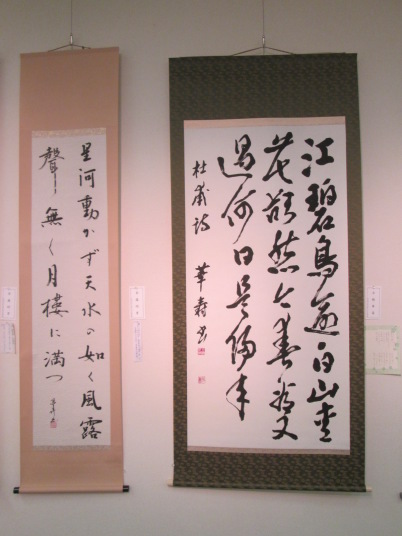 江碧鳥逾白山青
花欲然今春看又
過何日是帰年
杜甫詩 華書
星河動かず天水の如く風露
聲無く月樓に満つ